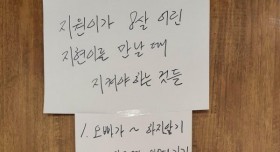 지원이가 8살 어린
지현이를 만날 때
지켜야 하는 것들
1. 오빠가 ~ 하지않기